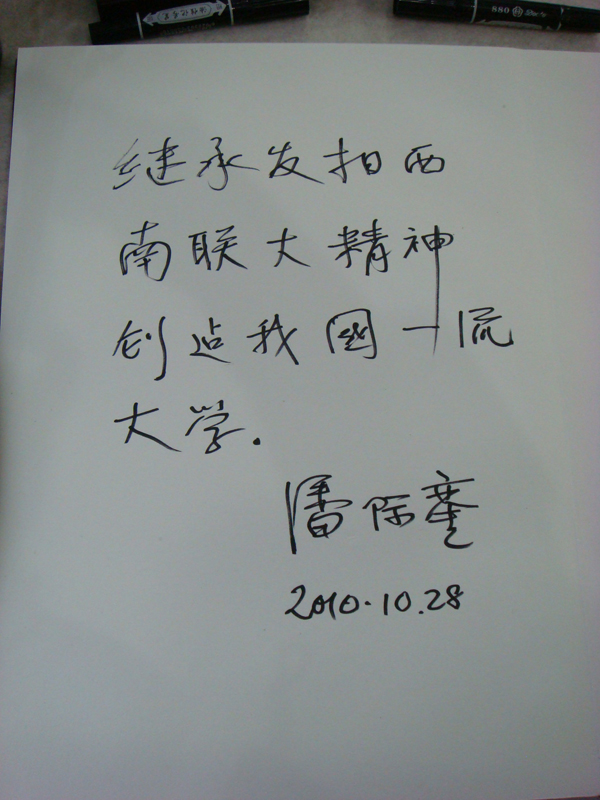 880
继承发扬西
南联大精神
创造我國一流
大学.
潘际銮
2010.10.28